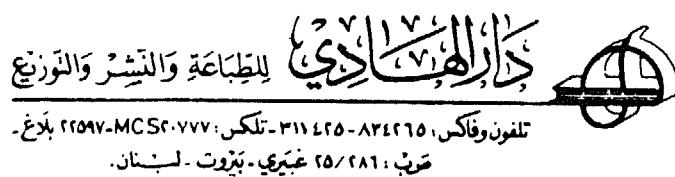 دَار الهَادِي للطِّبَاعَةِ وَالنَّشِرْ وَالتَّوزيْع
تلفون وفاكس: ٨٣٤٢٦٥-٣١١٤٢٥-تلكس: MCS٢٠٧٧٧-٢٢٥٩٧ بلاغ -
صَ.بُ: ٢٥/٢٨٦ غبَيري - بَيْروت - لبْنان.